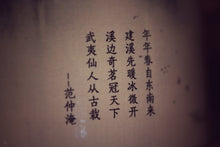 年年春自东南来
建溪先暖冰微开
溪边奇茗冠天下
武夷仙人从古栽
——范仲淹